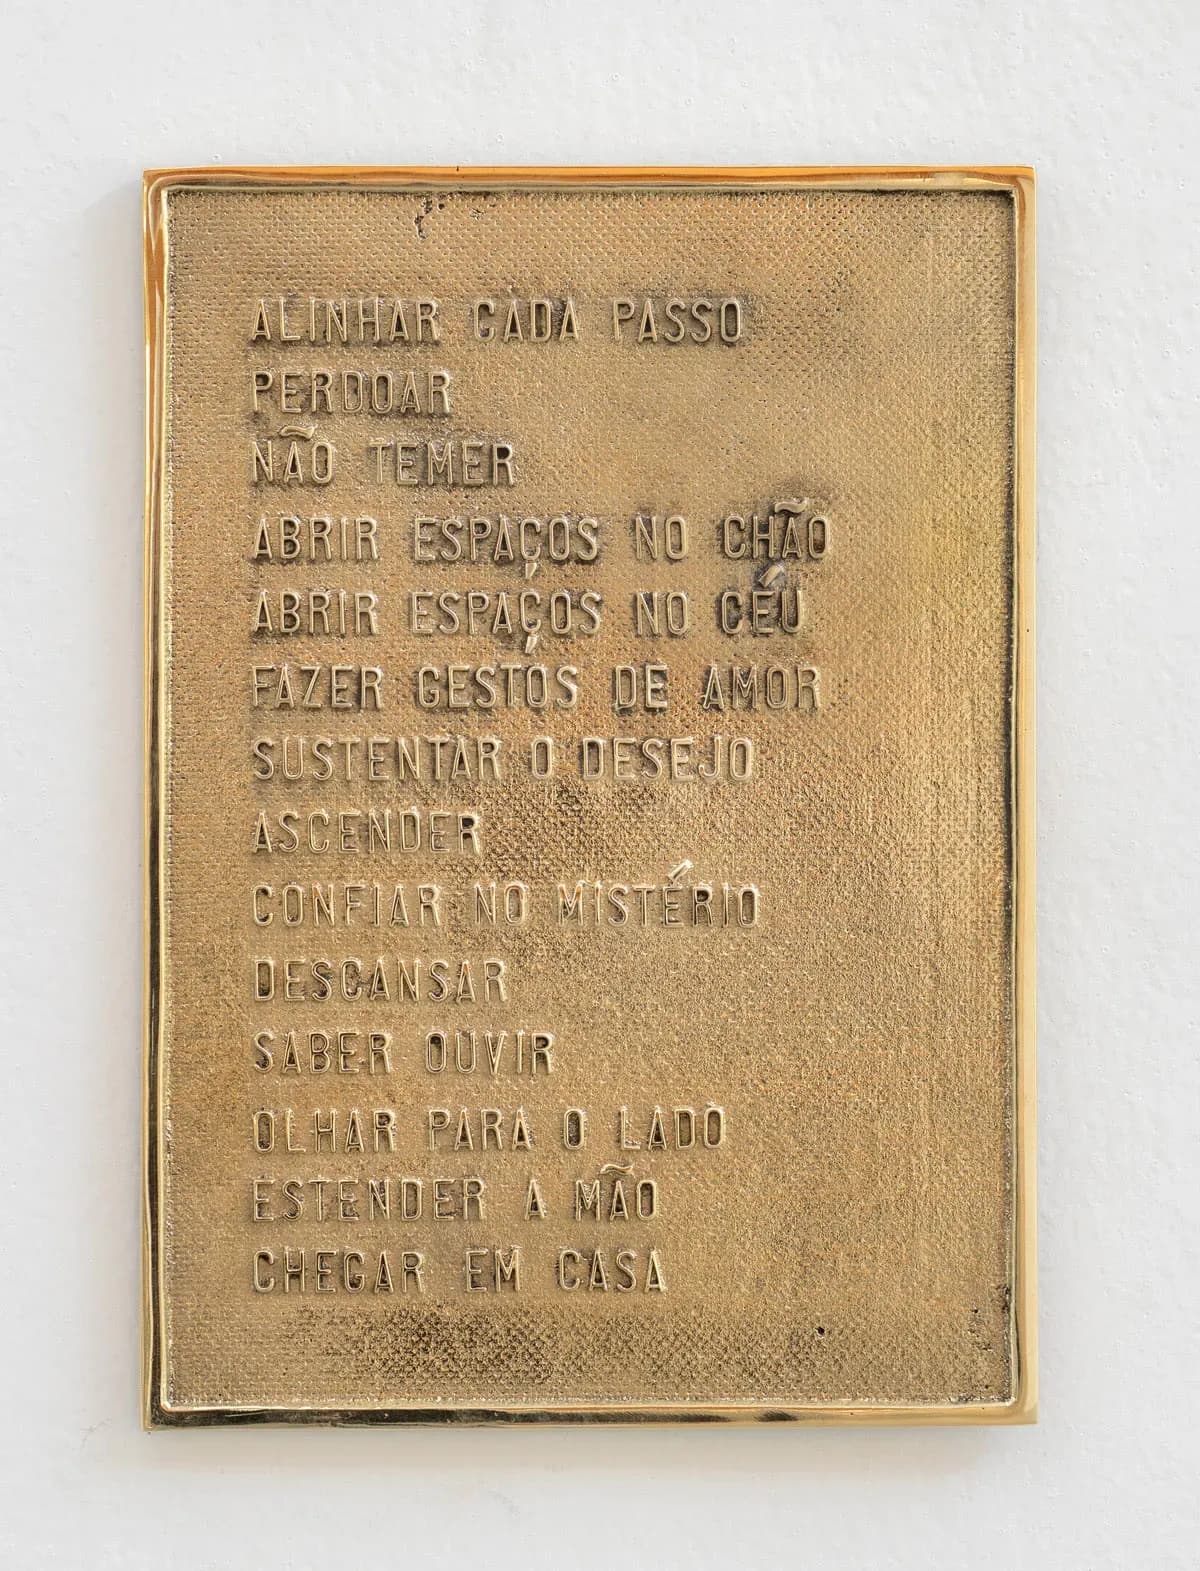 ALINHAR CADA PASSO
PERDOAR
NÃO TEMER
ABRIR ESPAÇOS NO CHÃO
ABRIR ESPAÇOS NO CÉU
FAZER GESTOS DE AMOR
SUSTENTAR O DESEJO
ASCENDER
CONFIAR NO MISTÉRIO
DESCANSAR
SABER OUVIR
OLHAR PARA O LADO
ESTENDER A MÃO
CHEGAR EM CASA